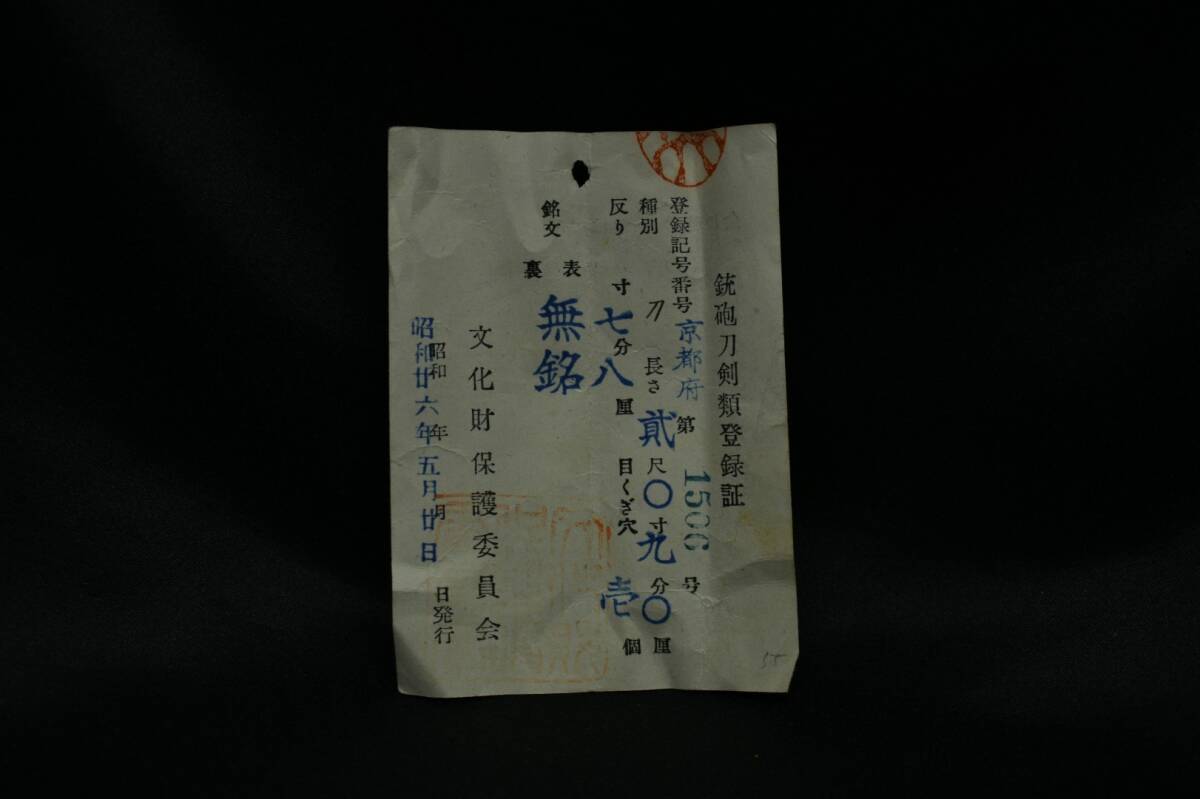 銃砲刀剣類登録証
登録記号番号 京都府 第1506号
種別 刀 長さ 貳尺〇寸九分〇厘
反り 寸七分八厘 目くぎ穴 壱個
銘文 表 無銘
裏
文化財保護委員会
昭和廿六年五月廿日
昭和 年 月 日発行